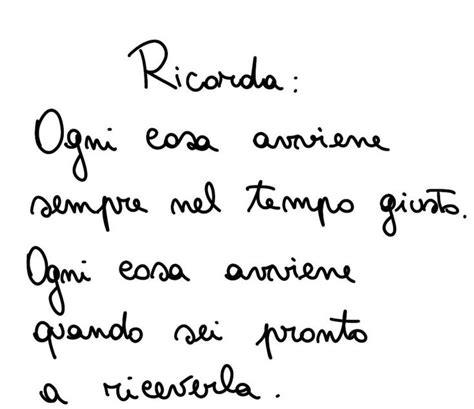 Ricorda:
Ogni cosa avviene
sempre nel tempo giusto.
Ogni cosa avviene
quando sei pronto
a riceverla.